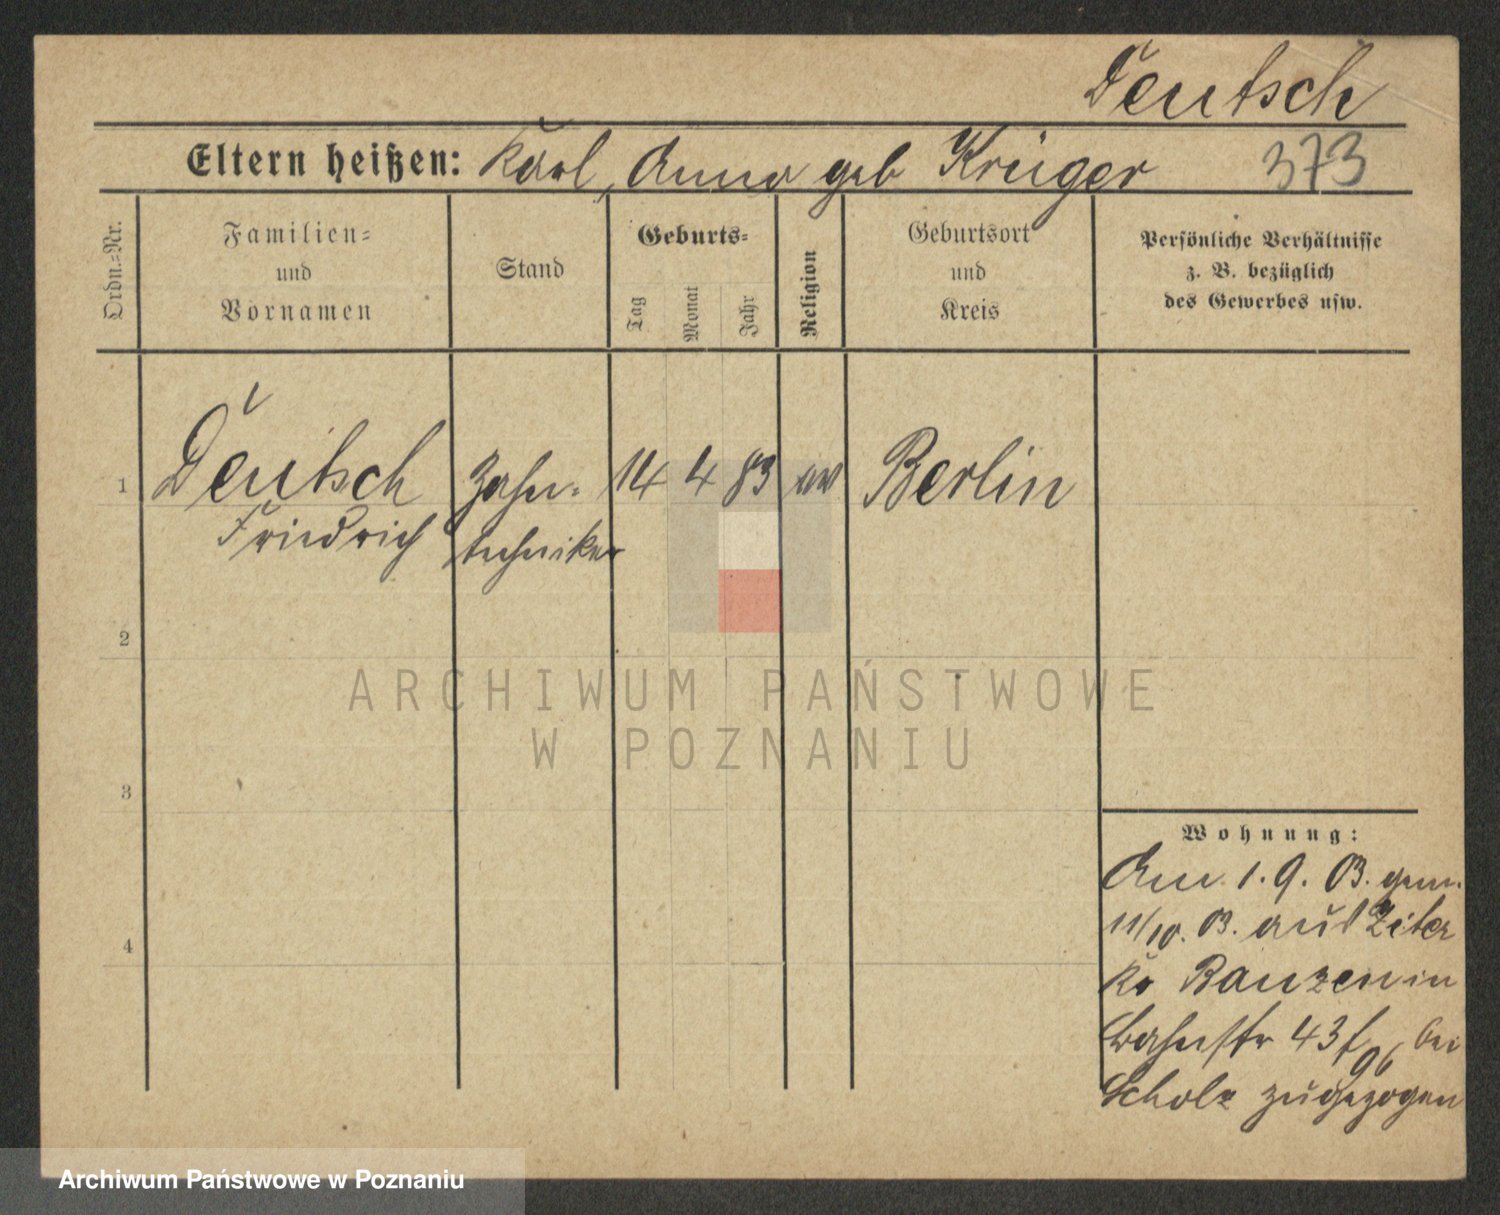 Deutsch
Eltern heißen: Karl, Anna geb Krüger 373
Ordn.=Nr.
Familien=
und
Vornamen
Stand
Geburts=
Tag
Monat
Jahr
Religion
Geburtsort
und
Kreis
Persönliche Verhältnisse
z. B. bezüglich
des Gewerbes usw.
1 Deutsch Zahn- 14 4 83 ev Berlin
Friedrich techniker
2
ARCHIWUM PAŃSTWOWE
W POZNANIU
3
Wohnung:
Am 1. 9. 03. gem.
11/10. 03. aus
Kr Bauzen in
Bahnstr 43 bei
Scholz zugezogen
4
Archiwum Państwowe w Poznaniu